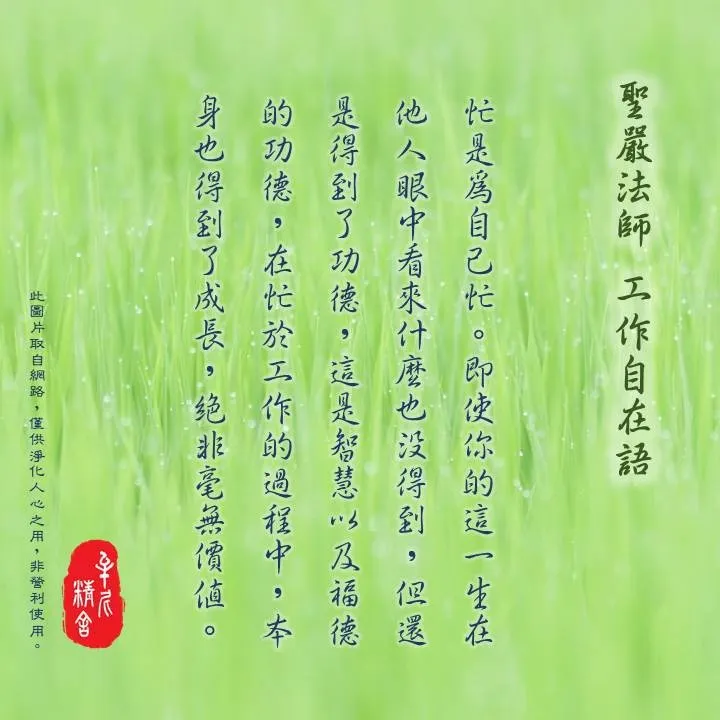 聖嚴法師 工作自在語
忙是為自己忙。即使你的這一生在
他人眼中看來什麼也沒得到,但還
是得到了功德,這是智慧以及福德
的功德,在忙於工作的過程中,本
身也得到了成長,絕非毫無價值。
精舍
此圖片取自網路,僅供淨化人心之用,非營利使用。